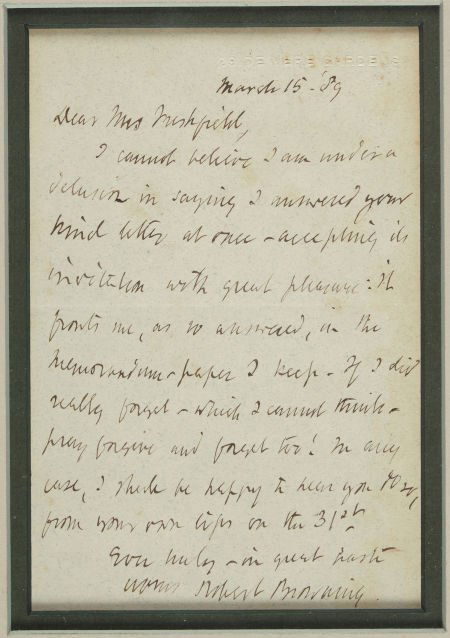 29, DE VERE GARDENS
March 15. '89
Dear Mrs Freshfield,
I cannot believe I am under a
delusion in saying I answered your
kind letter at once - accepting its
invitation with great pleasure: it
fronts me, as so answered, in the
memorandum-paper I keep. If I did
really forget - which I cannot think -
pray forgive and forget too! In any
case, I shall be happy to hear you say,
from your own lips on the 31st.
Ever truly - in great haste
yours Robert Browning.